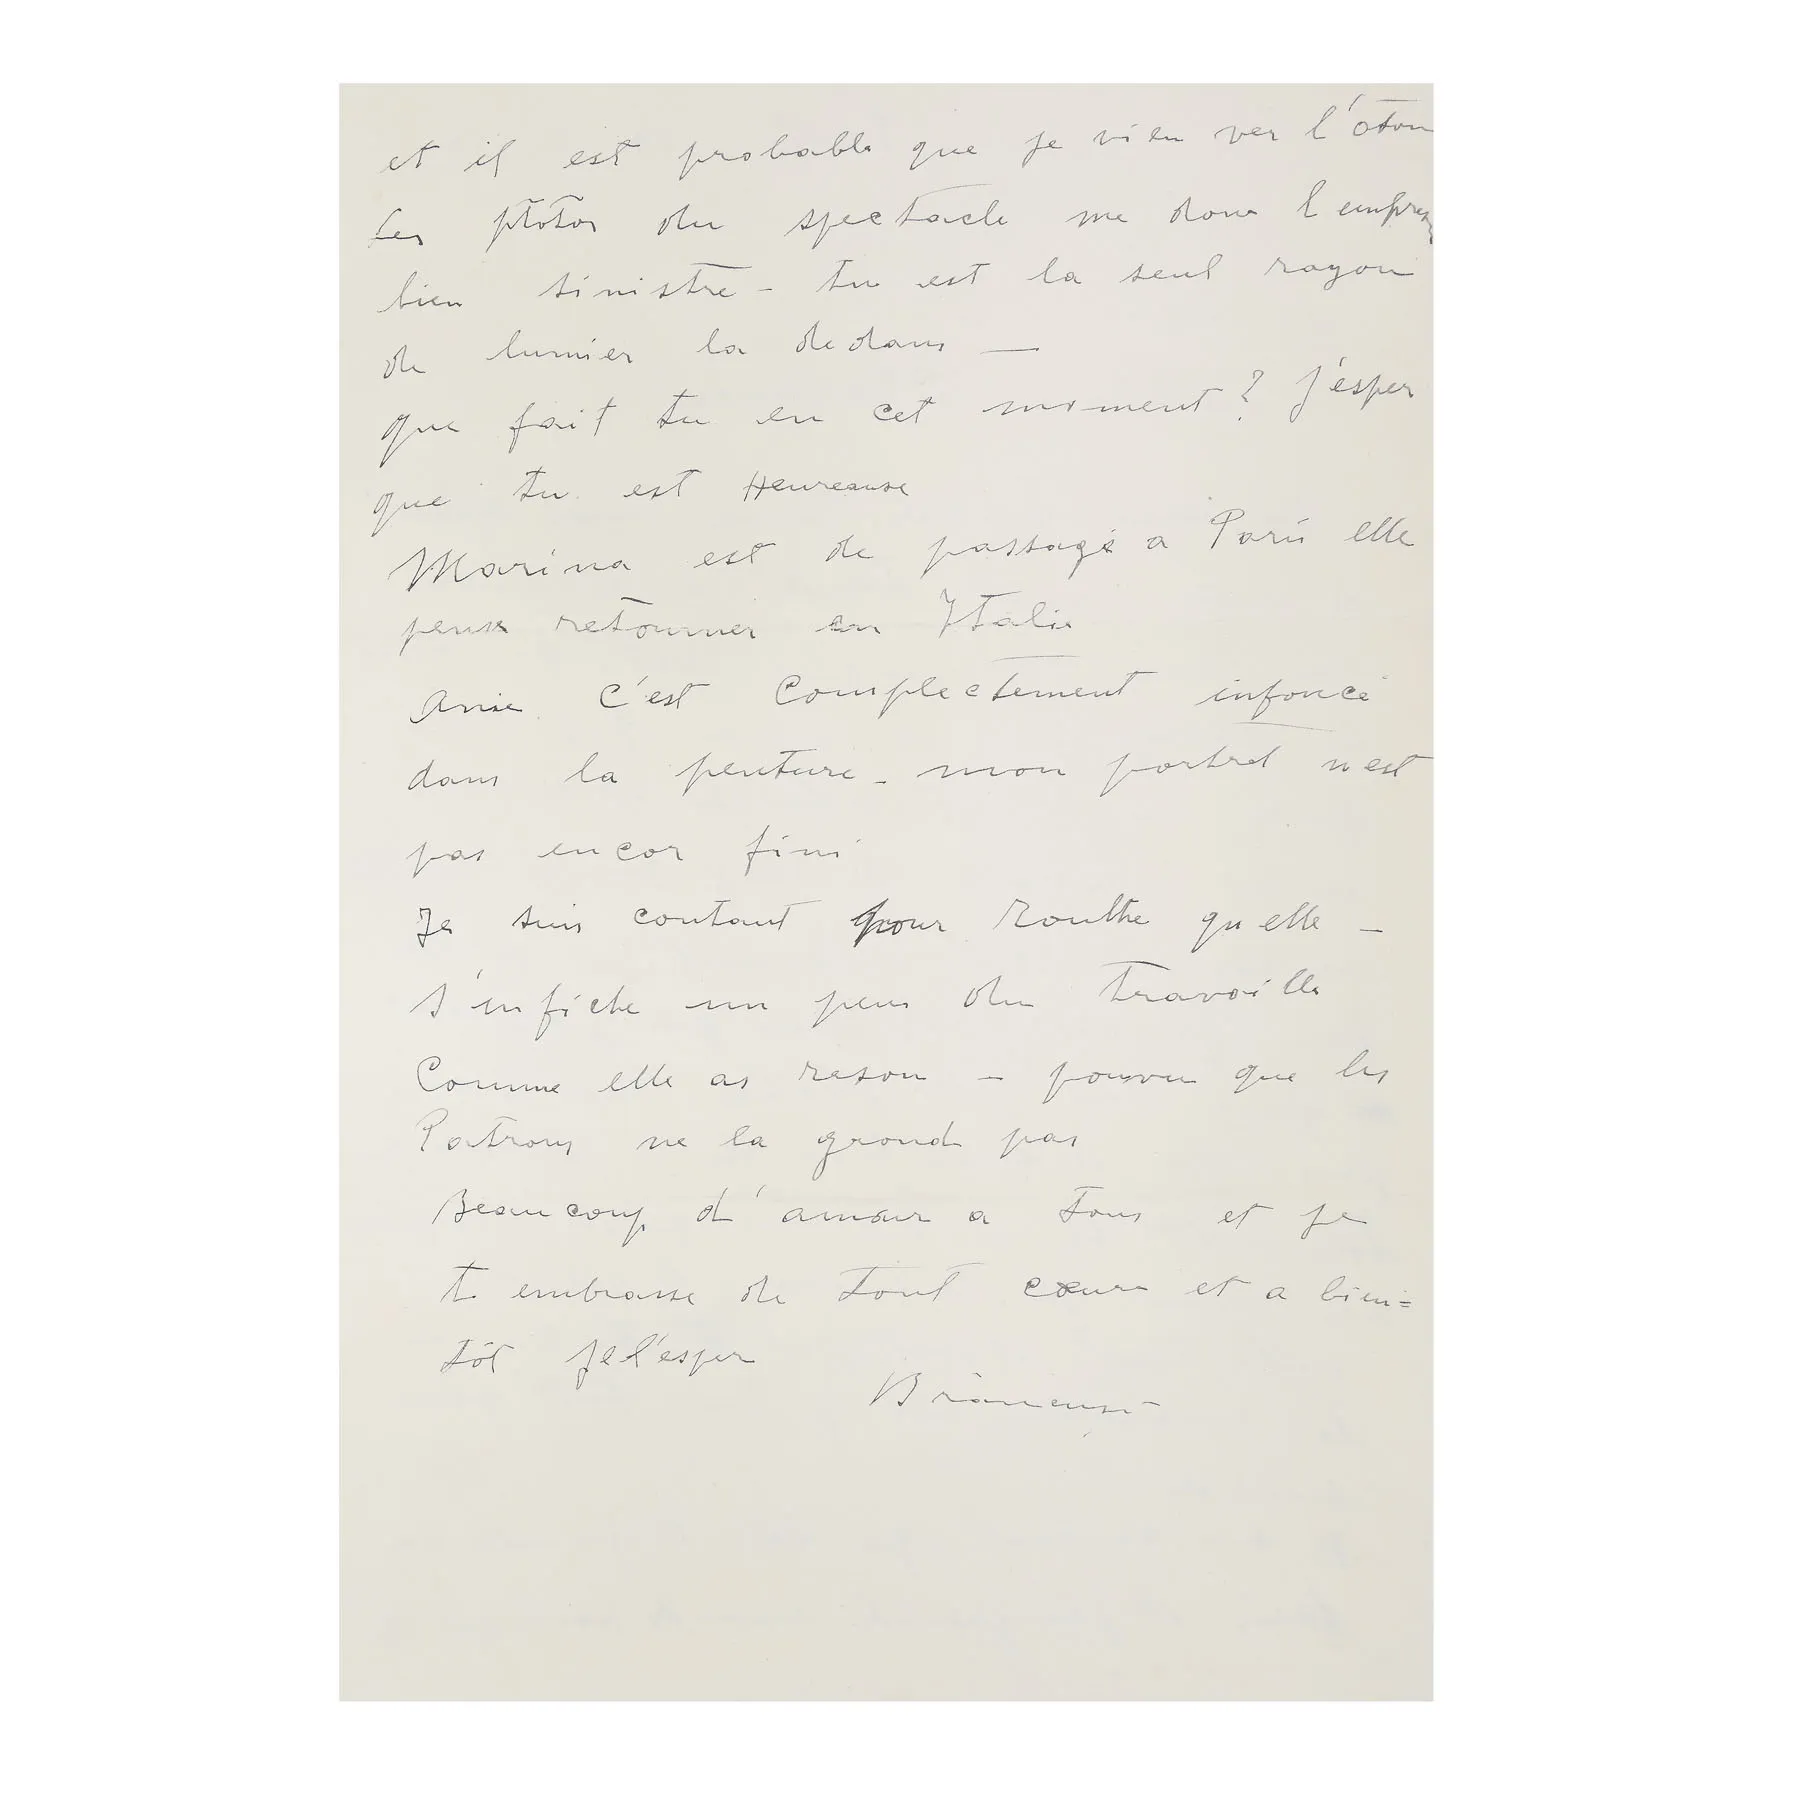 et il est probable que je vien ver l'oton
Les photos du spectacle me done l'empres
bien sinistre - tu est la seul rayon
de lumier la dedans —
que fait tu en cet moment ? J'esper
que tu est Heureuse
Marina est de passage a Paris elle
peux retourner en Italie
c'est Complectement infoncé
dans la penture - mon portret n'est
pas encor fini
Je suis contant pour qu elle -
s'enfiche un peu du travaille
Comme elle as reson - pourvu que les
Patrons ne la grond pas
Beaucoup d'amour a tous et je
t embrasse de tout cœur et a bien=
tôt je l'esper
Brâncuși